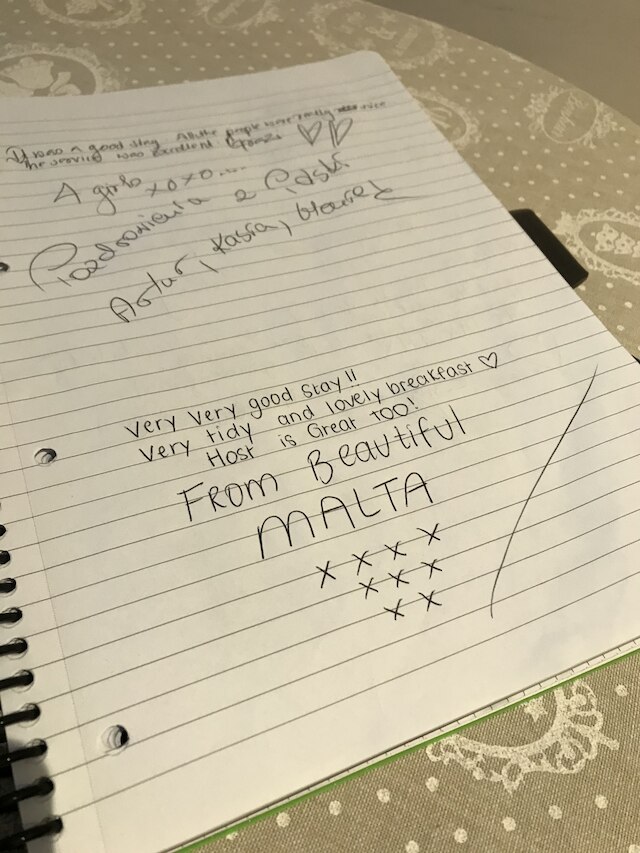 It was a good stay. All the people were really nice
The service was excellent
4 girls xoxo...
Pozdrowienia z
Artur, Kasia,
Very Very good stay!!
Very tidy and lovely breakfast ♡
Host is Great too!
From Beautiful
MALTA
x x x x
x x x
x x